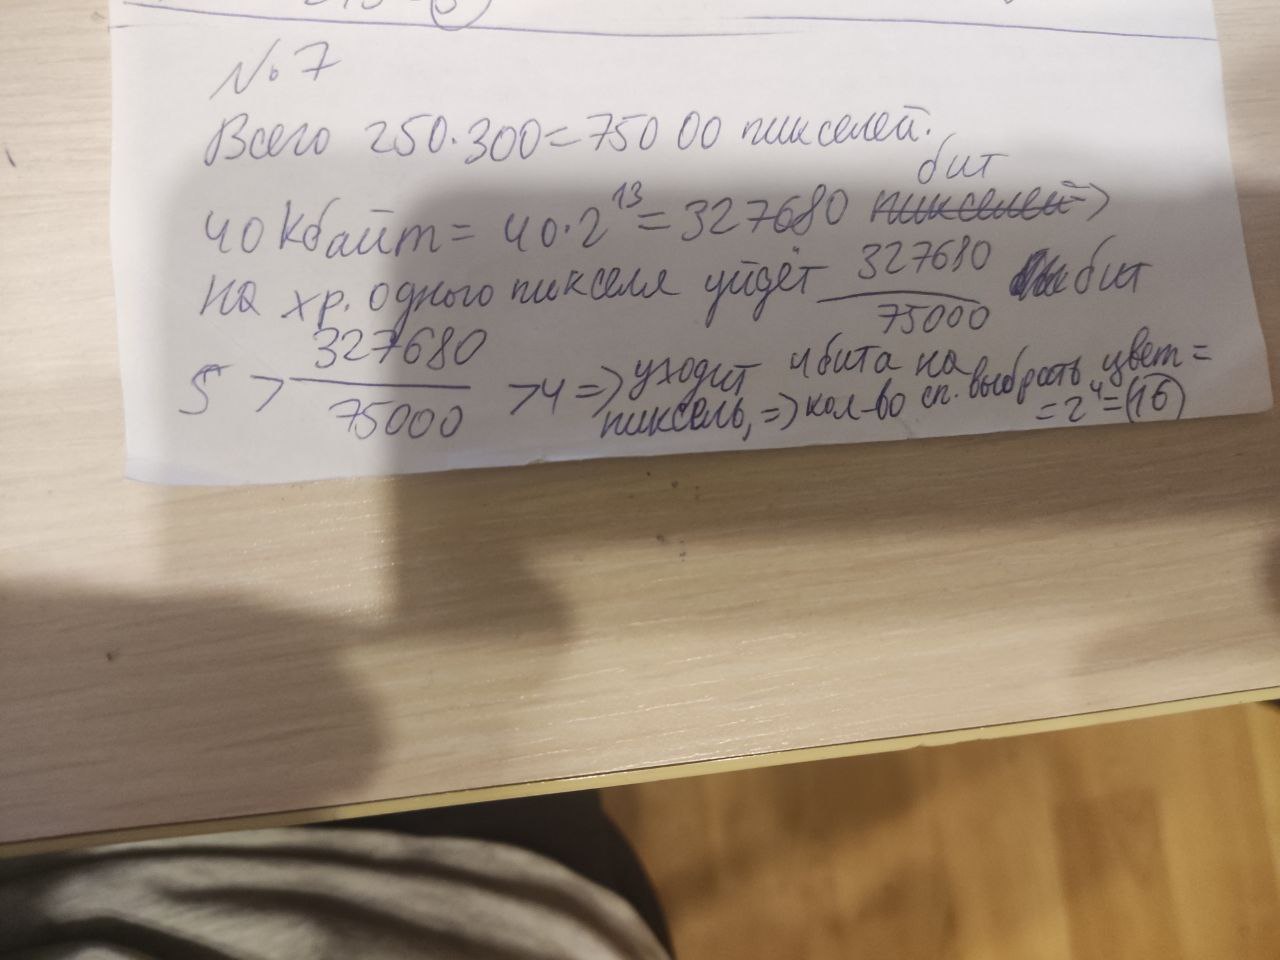 № 7
Всего 250·300=75000 пикселей.
бит
40 Кбайт = 40·2¹³ = 327680 пикселей =>
на хр. одного пикселя уйдёт 327680/75000 бит
5 > 327680/75000 >4 => уходит 4 бита на
пиксель, => кол-во сп. выбрать цвет =
= 2⁴ = 16